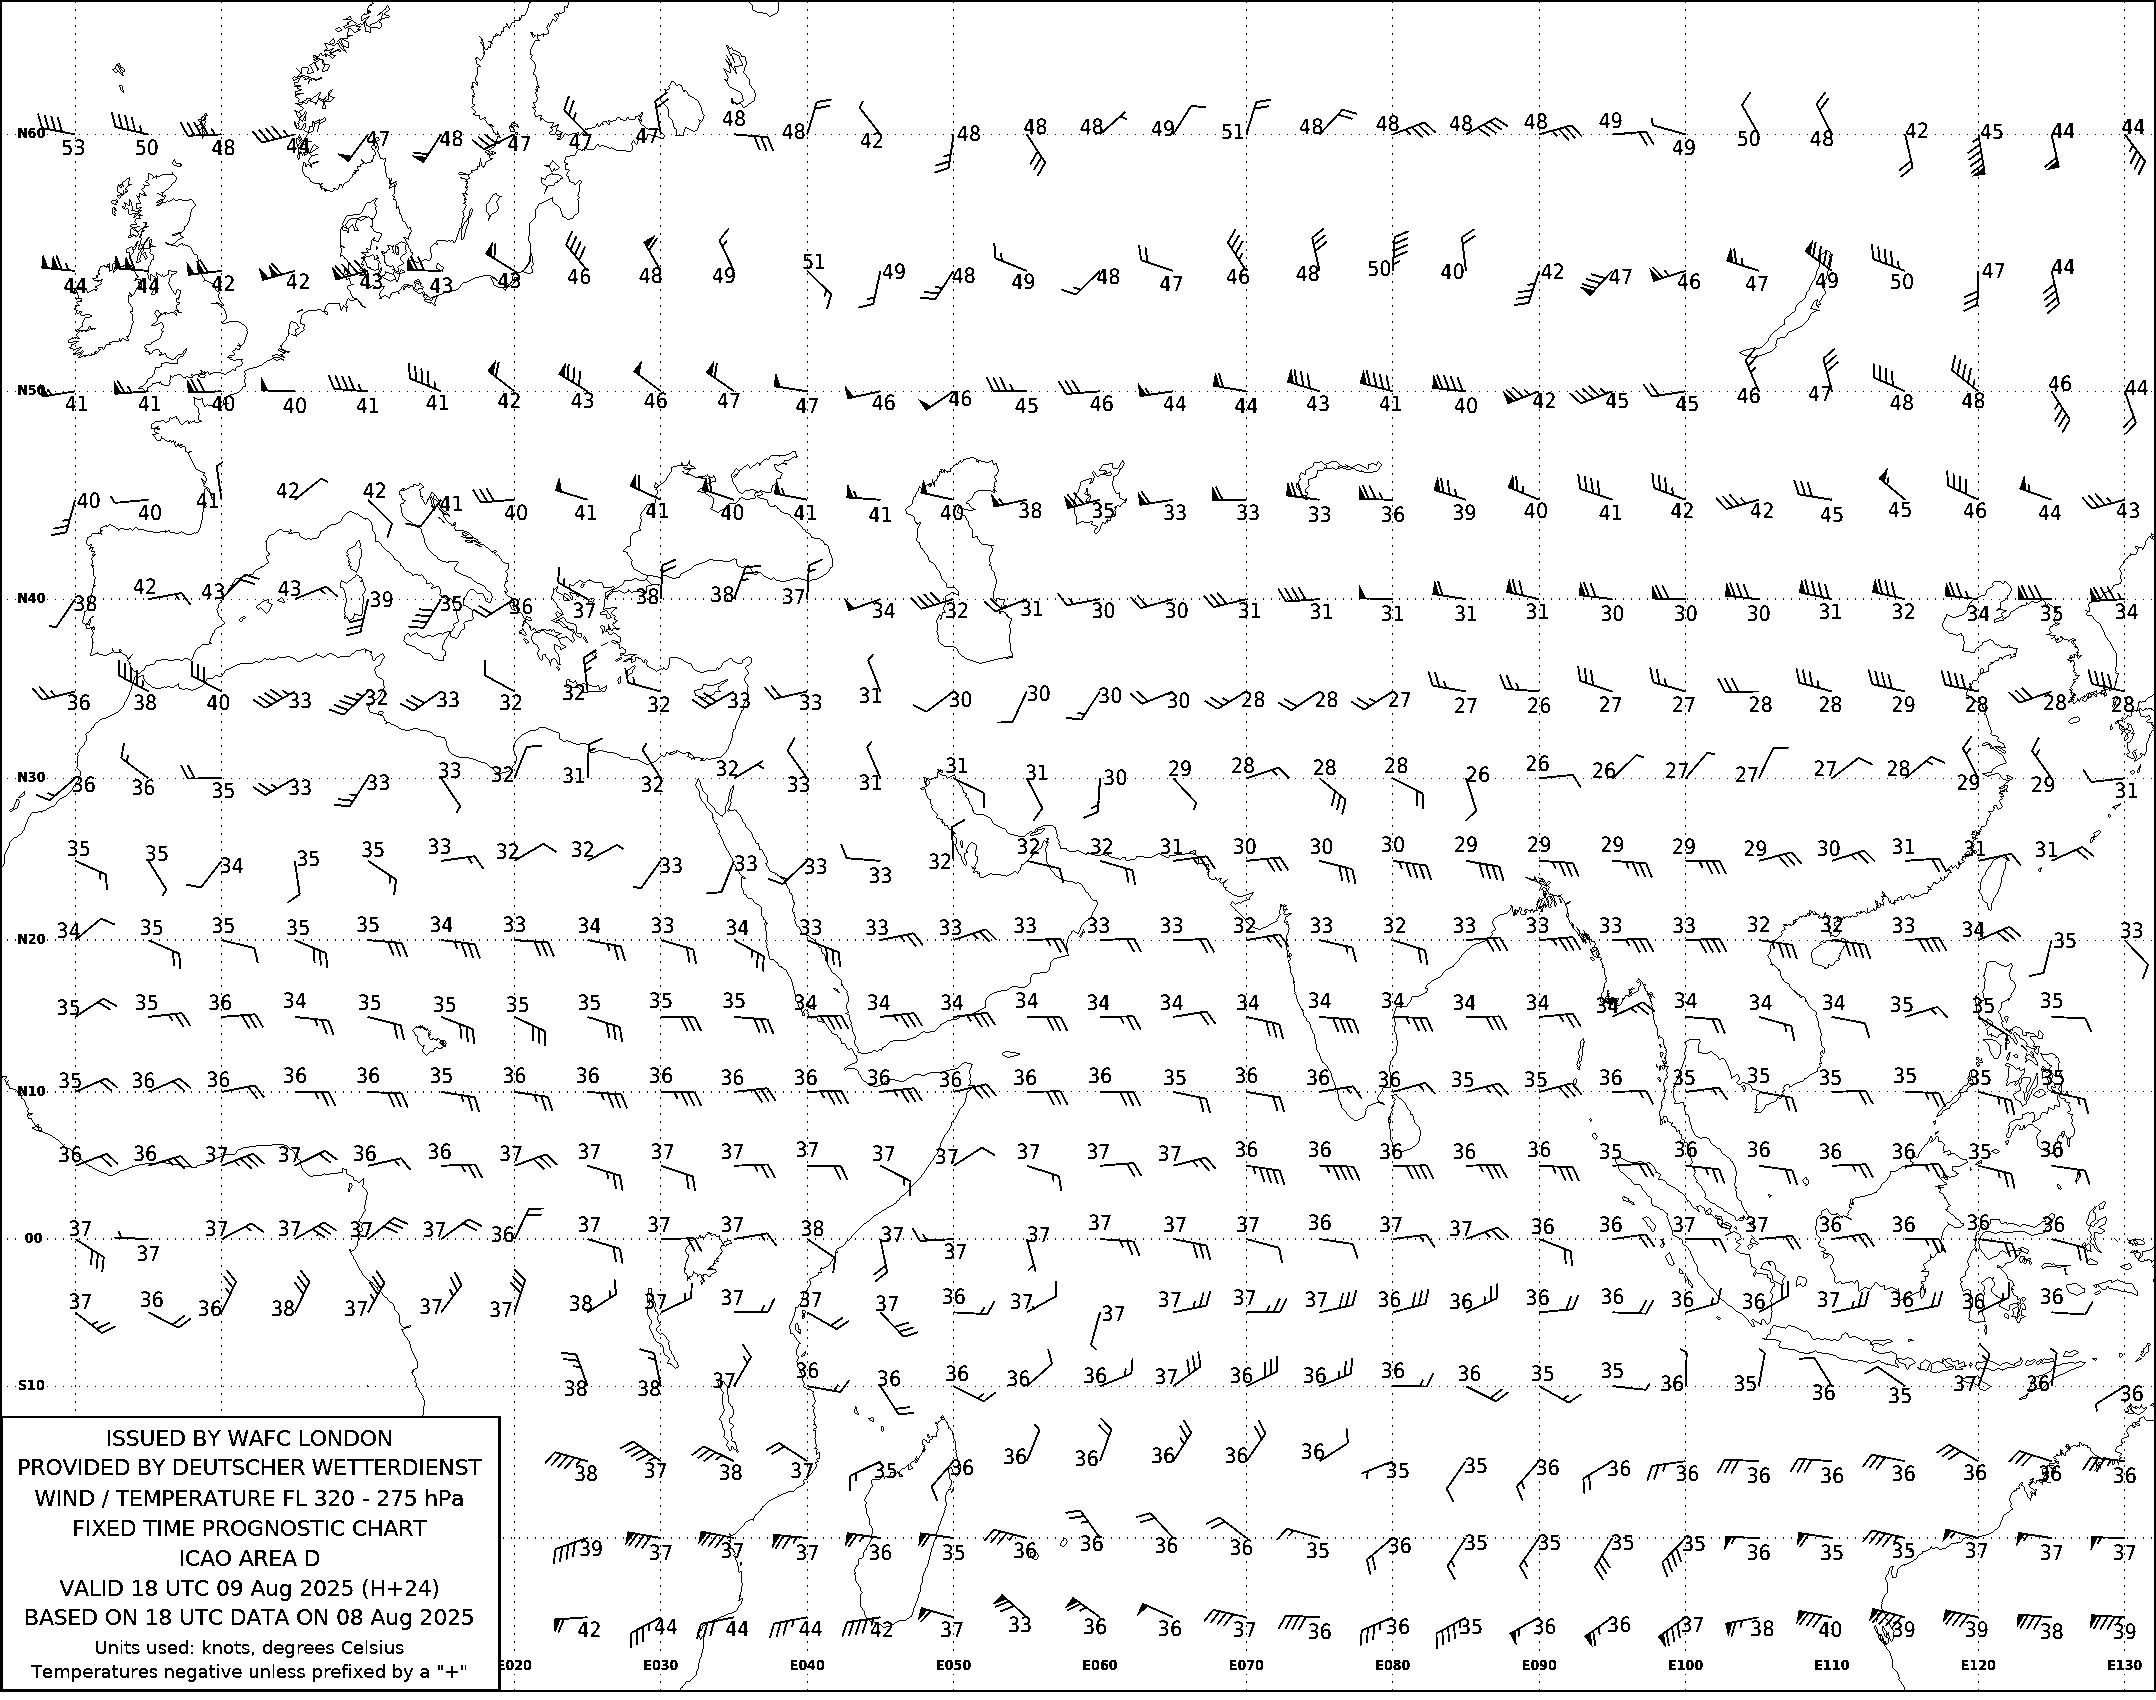 N60 53 50 48 44 47 48 47 47 47 48 48 42 48 48 48 49 51 48 48 48 48 49 49 50 48 42 45 44 44
44 44 42 42 43 43 43 46 48 49 51 49 48 49 48 47 46 48 50 40 42 47 46 47 49 50 47 44
N50 41 41 40 40 41 41 42 43 46 47 47 46 46 45 46 44 44 43 41 40 42 45 45 46 47 48 48 46 44
40 40 41 42 42 41 40 41 41 40 41 41 40 38 35 33 33 33 36 39 40 41 42 42 45 45 46 44 43
N40 38 42 43 43 39 35 36 37 38 38 37 34 32 31 30 30 31 31 31 31 31 30 30 30 31 32 34 35 34
36 38 40 33 32 33 32 32 32 33 33 31 30 30 30 30 28 28 27 27 26 27 27 28 28 29 28 28 28
N30 36 36 35 33 33 33 32 31 32 32 33 31 31 31 30 29 28 28 28 26 26 26 27 27 27 28 29 29 31
35 35 34 35 35 33 32 32 33 33 33 33 32 32 32 31 30 30 30 29 29 29 29 29 30 31 31 31
N20 34 35 35 35 35 34 33 34 33 34 33 33 33 33 33 33 32 33 32 33 33 33 33 32 32 33 34 35 33
35 35 36 34 35 35 35 35 35 35 34 34 34 34 34 34 34 34 34 34 34 34 34 34 34 35 35 35
N10 35 36 36 36 36 35 36 36 36 36 36 36 36 36 36 35 36 36 36 35 35 36 35 35 35 35 35 35
36 36 37 37 36 36 37 37 37 37 37 37 37 37 37 37 36 36 36 36 36 35 36 36 36 36 35 36
00 37 37 37 37 37 37 36 37 37 37 38 37 37 37 37 37 37 36 37 37 36 36 37 37 36 36 36 36
37 36 36 38 37 37 37 38 37 37 37 37 36 37 37 37 37 37 36 36 36 36 36 36 37 36 36 36
S10 38 38 37 36 36 36 36 36 37 36 36 36 36 35 35 36 35 36 35 37 36 36
38 37 38 37 35 36 36 36 36 36 36 35 35 36 36 36 36 36 36 36 36 36
39 37 37 37 36 35 36 36 36 36 35 36 35 35 35 35 36 35 35 37 37 37
42 44 44 44 42 37 33 36 36 37 36 36 35 36 36 37 38 40 39 39 38 39
E020 E030 E040 E050 E060 E070 E080 E090 E100 E110 E120 E130
ISSUED BY WAFC LONDON
PROVIDED BY DEUTSCHER WETTERDIENST
WIND / TEMPERATURE FL 320 - 275 hPa
FIXED TIME PROGNOSTIC CHART
ICAO AREA D
VALID 18 UTC 09 Aug 2025 (H+24)
BASED ON 18 UTC DATA ON 08 Aug 2025
Units used: knots, degrees Celsius
Temperatures negative unless prefixed by a "+"